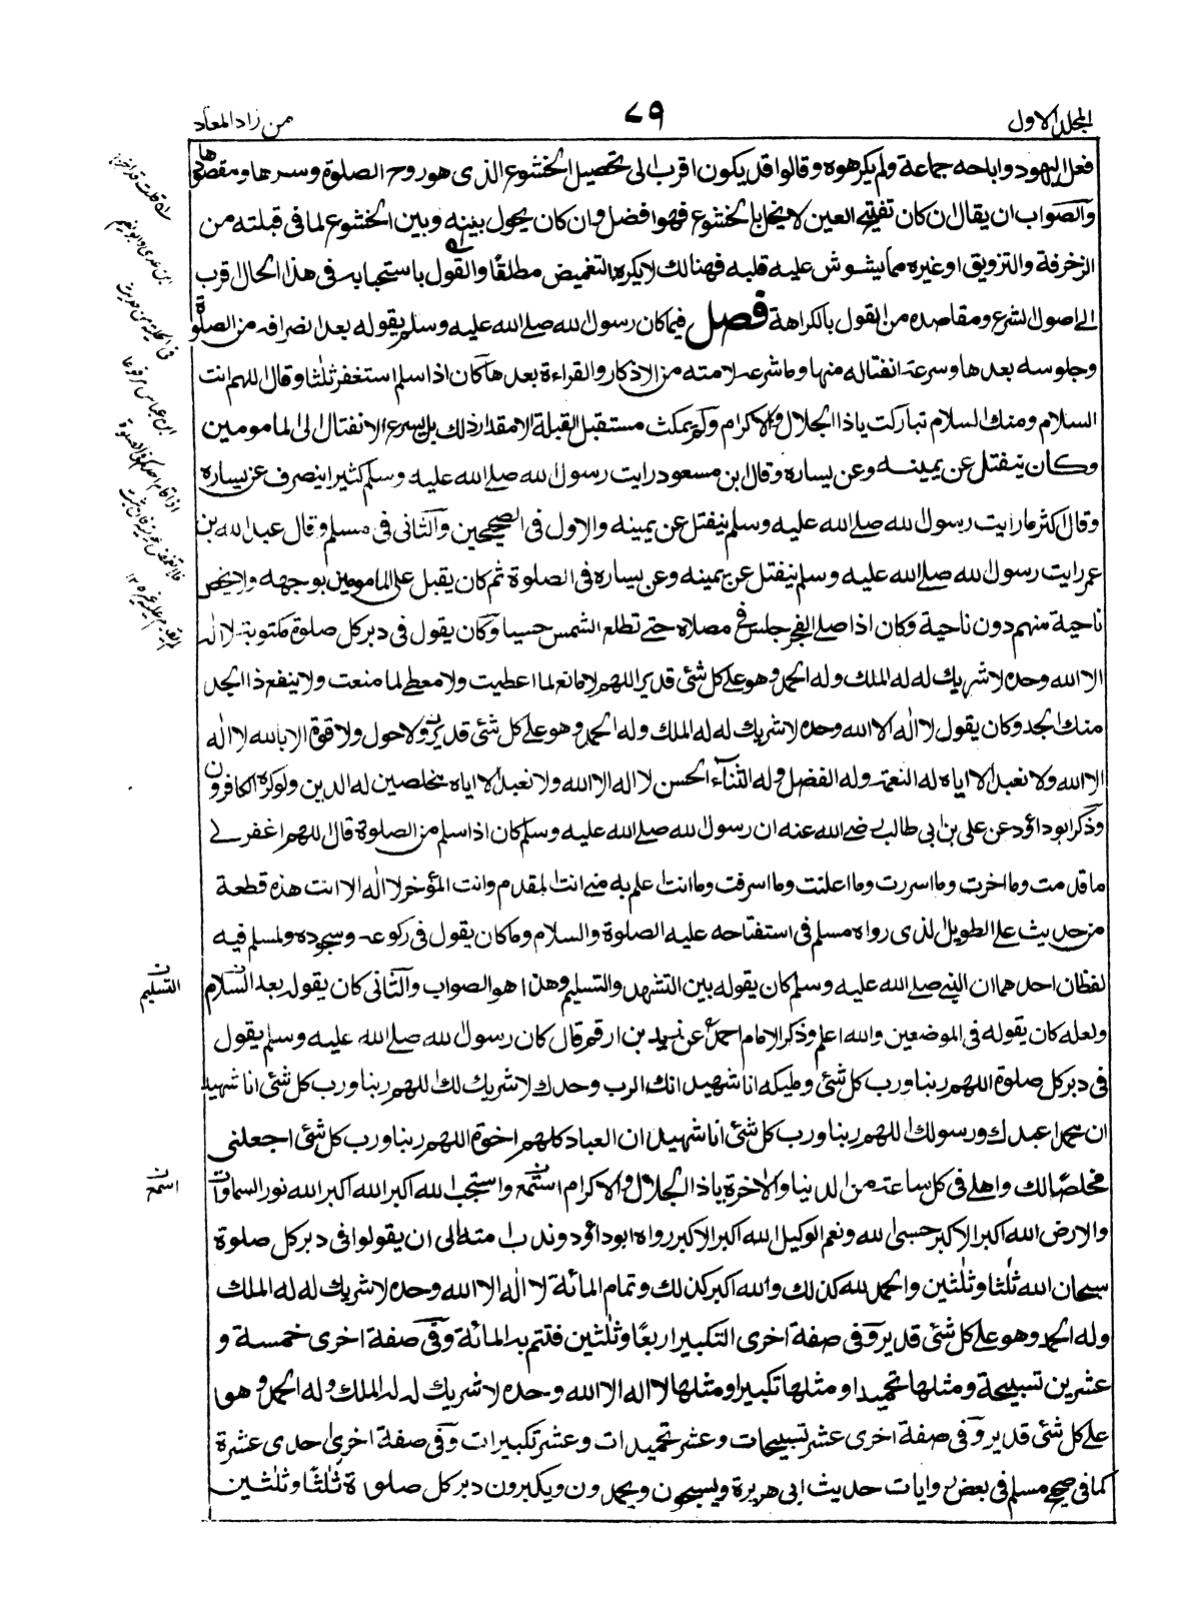 المجلد الاول
٧٩
من زاد المعاد
فعل اليهود واباحه جماعة ولم يكرهوه وقالوا قد يكون اقرب الى تحصيل الخشوع الذى هو روح الصلوة وسرها ومقصودها
والصواب ان يقال ان كان تفتيح العين لا يخل بالخشوع فهو افضل وان كان يحول بينه وبين الخشوع لما فى قبلته من
الزخرفة والتزويق او غيره مما يشوش عليه قلبه فهنالك لا يكره التغميض مطلقًا والقول باستحبابه فى هذا الحال اقرب
الى اصول الشرع ومقاصده من القول بالكراهة فصل فيما كان رسول الله صلى الله عليه وسلم يقوله بعد انصرافه من الصلوة
وجلوسه بعدها وسرعة انفتاله منها وما شرعه لامته من الاذكار والقراءة بعدها كان اذا سلم استغفر ثلثا وقال اللهم انت
السلام ومنك السلام تباركت ياذا الجلال والاكرام ولم يمكث مستقبل القبلة الا مقدار ذلك بل يسرع الانفتال الى المامومين
وكان ينفتل عن يمينه وعن يساره وقال ابن مسعود رايت رسول الله صلى الله عليه وسلم كثيرا ينصرف عن يساره
وقال اكثر ما رايت رسول الله صلى الله عليه وسلم ينفتل عن يمينه والاول فى الصحيحين والثانى فى مسلم وقال عبد الله بن
عمر رايت رسول الله صلى الله عليه وسلم ينفتل عن يمينه وعن يساره فى الصلوة ثم كان يقبل على المامومين بوجهه ولا يخص
ناحية منهم دون ناحية وكان اذا صلى الفجر جلس فى مصلاه حتى تطلع الشمس حسنا وكان يقول فى دبر كل صلوة مكتوبة لا اله
الا الله وحده لا شريك له له الملك وله الحمد وهو على كل شئ قدير اللهم لا مانع لما اعطيت ولا معطى لما منعت ولا ينفع ذا الجد
منك الجد وكان يقول لا اله الا الله وحده لا شريك له له الملك وله الحمد وهو على كل شئ قدير ولا حول ولا قوة الا بالله لا اله
الا الله ولا نعبد الا اياه له النعمة وله الفضل وله الثناء الحسن لا اله الا الله ولا نعبد الا اياه مخلصين له الدين ولو كره الكافرون
وذكر ابو داؤد عن على بن ابى طالب رضى الله عنه ان رسول الله صلى الله عليه وسلم كان اذا سلم من الصلوة قال اللهم اغفر لى
ما قدمت وما اخرت وما اسررت وما اعلنت وما اسرفت وما انت اعلم به منى انت المقدم وانت المؤخر لا اله الا انت هذه قطعة
من حديث على الطويل الذى رواه مسلم فى استفتاحه عليه الصلوة والسلام وما كان يقول فى ركوعه وسجوده ولمسلم فيه
لفظان احدهما ان النبى صلى الله عليه وسلم كان يقوله بين التشهد والتسليم وهذا هو الصواب والثانى كان يقوله بعد السلام
التسليم
ولعله كان يقوله فى الموضعين والله اعلم وذكر الامام احمد عن زيد بن ارقم قال كان رسول الله صلى الله عليه وسلم يقول
فى دبر كل صلوة اللهم ربنا ورب كل شئ ومليكه انا شهيد انك الرب وحدك لا شريك لك اللهم ربنا ورب كل شئ انا شهيد
ان محمدا عبدك ورسولك اللهم ربنا ورب كل شئ انا شهيد ان العباد كلهم اخوة اللهم ربنا ورب كل شئ اجعلنى
مخلصًا لك واهلى فى كل ساعة من الدنيا والاخرة ياذا الجلال والاكرام استمع واستجب الله اكبر الله اكبر الله نور السماوات
اسمع
والارض الله اكبر الاكبر حسبى الله ونعم الوكيل الله اكبر الاكبر رواه ابو داؤد وندب امته الى ان يقولوا فى دبر كل صلوة
سبحان الله ثلثا وثلثين والحمد لله كذلك والله اكبر كذلك وتمام المائة لا اله الا الله وحده لا شريك له له الملك
وله الحمد وهو على كل شئ قدير وفى صفة اخرى التكبير اربعًا وثلثين فتتم به المائة وفى صفة اخرى خمسة و
عشرين تسبيحة ومثلها تحميدا ومثلها تكبيرا ومثلها لا اله الا الله وحده لا شريك له له الملك وله الحمد وهو
على كل شئ قدير وفى صفة اخرى عشر تسبيحات وعشر تحميدات وعشر تكبيرات وفى صفة اخرى احدى عشرة
كما فى صحيح مسلم فى بعض روايات حديث ابى هريرة ويسبحون ويحمدون ويكبرون دبر كل صلوة ثلثًا وثلثين